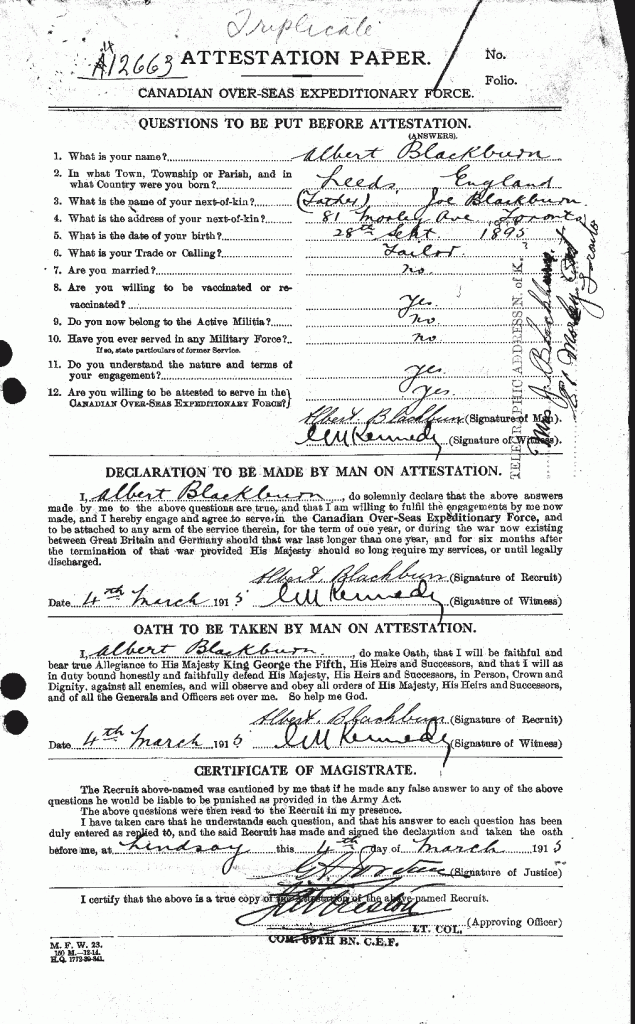 Triplicate
A12663
ATTESTATION PAPER.
No.
Folio.
CANADIAN OVER-SEAS EXPEDITIONARY FORCE.
QUESTIONS TO BE PUT BEFORE ATTESTATION.
(ANSWERS).
1. What is your name? Albert Blackburn
2. In what Town, Township or Parish, and in
what Country were you born? Leeds, England
3. What is the name of your next-of-kin? (Father) Joe Blackburn
4. What is the address of your next-of-kin? 81 Morley Ave Toronto
5. What is the date of your birth? 28th Sept. 1895
6. What is your Trade or Calling? Tailor
7. Are you married? no
8. Are you willing to be vaccinated or re-
vaccinated? Yes.
9. Do you now belong to the Active Militia? no.
10. Have you ever served in any Military Force? no
If so, state particulars of former Service.
11. Do you understand the nature and terms of
your engagement? Yes.
12. Are you willing to be attested to serve in the
CANADIAN OVER-SEAS EXPEDITIONARY FORCE? Yes.
Albert Blackburn (Signature of Man).
C M Kennedy (Signature of Witness).
TELEGRAPHIC ADDRESS N. of K.
Mrs J. Blackburn
81 Morley
Toronto
DECLARATION TO BE MADE BY MAN ON ATTESTATION.
I, Albert Blackburn, do solemnly declare that the above answers
made by me to the above questions are true, and that I am willing to fulfil the engagements by me now
made, and I hereby engage and agree to serve in the Canadian Over-Seas Expeditionary Force, and
to be attached to any arm of the service therein, for the term of one year, or during the war now existing
between Great Britain and Germany should that war last longer than one year, and for six months after
the termination of that war provided His Majesty should so long require my services, or until legally
discharged.
Albert Blackburn (Signature of Recruit)
Date 4th March 1915 C M Kennedy (Signature of Witness)
OATH TO BE TAKEN BY MAN ON ATTESTATION.
I, Albert Blackburn, do make Oath, that I will be faithful and
bear true Allegiance to His Majesty King George the Fifth, His Heirs and Successors, and that I will as
in duty bound honestly and faithfully defend His Majesty, His Heirs and Successors, in Person, Crown and
Dignity, against all enemies, and will observe and obey all orders of His Majesty, His Heirs and Successors,
and of all the Generals and Officers set over me. So help me God.
Albert Blackburn (Signature of Recruit)
Date 4th March 1915 C M Kennedy (Signature of Witness)
CERTIFICATE OF MAGISTRATE.
The Recruit above-named was cautioned by me that if he made any false answer to any of the above
questions he would be liable to be punished as provided in the Army Act.
The above questions were then read to the Recruit in my presence.
I have taken care that he understands each question, and that his answer to each question has been
duly entered as replied to, and the said Recruit has made and signed the declaration and taken the oath
before me, at Lindsay this 4th day of March 1915
(Signature of Justice)
I certify that the above is a true copy of the Attestation of the above-named Recruit.
(Approving Officer)
LT. COL.
COM. 39TH BN. C.E.F.
M. F. W. 23.
150 M.—12-14.
H.Q. 1772-39-841.